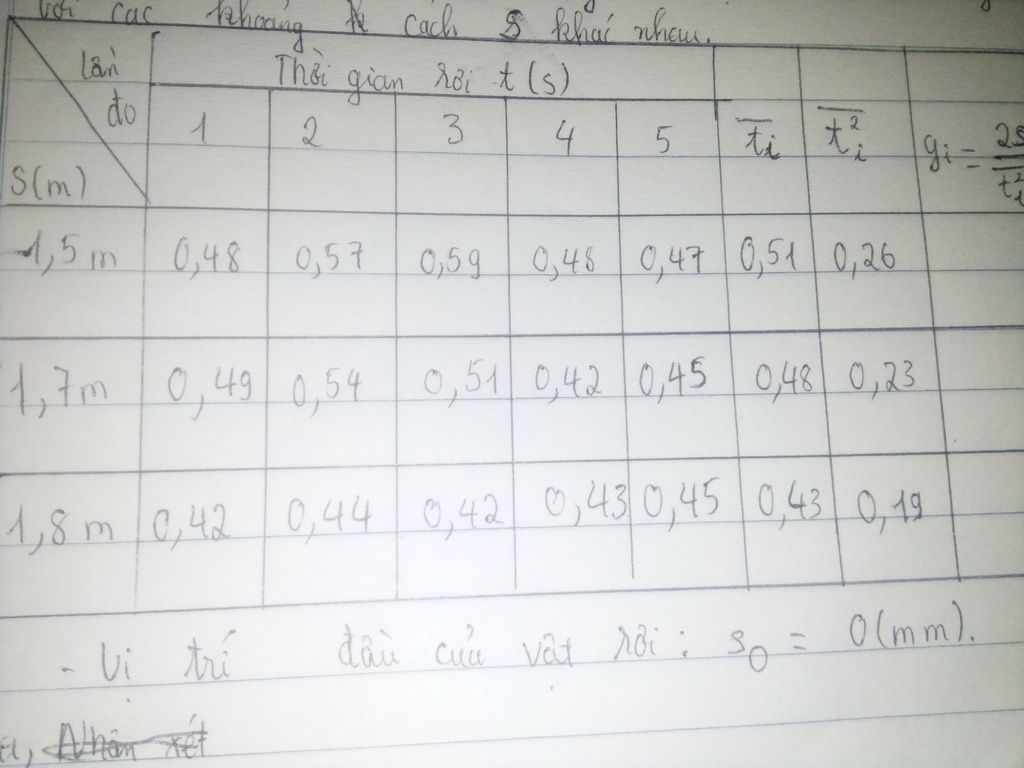 với các khoảng cách s khác nhau.
lần đo
Thời gian rơi t (s)
S(m)
1 2 3 4 5 t̅i t̅i² gi = 2s/t̅i²
1,5 m 0,48 0,57 0,59 0,48 0,47 0,51 0,26
1,7m 0,49 0,54 0,51 0,42 0,45 0,48 0,23
1,8 m 0,42 0,44 0,42 0,43 0,45 0,43 0,19
- Vị trí đầu của vật rơi : s₀ = 0(mm).
Nhận xét